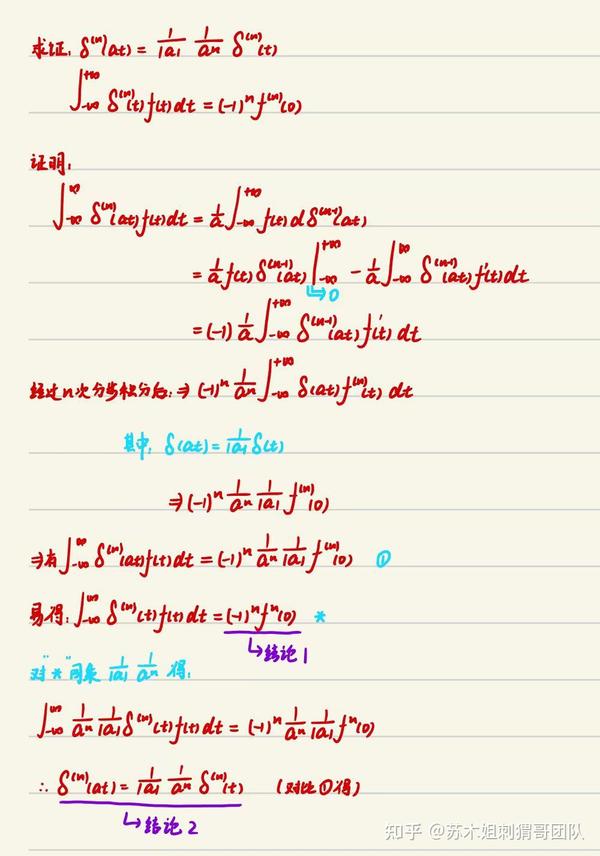 求证: δ⁽ⁿ⁾(at) = 1/|a| 1/aⁿ δ⁽ⁿ⁾(t)
∫_{-∞}^{+∞} δ⁽ⁿ⁾(t) f(t) dt = (-1)ⁿ f⁽ⁿ⁾(0)
证明:
∫_{-∞}^{∞} δ⁽ⁿ⁾(at) f(t) dt = 1/a ∫_{-∞}^{+∞} f(t) d δ⁽ⁿ⁻¹⁾(at)
= 1/a f(t) δ⁽ⁿ⁻¹⁾(at) |_{-∞}^{+∞} - 1/a ∫_{-∞}^{∞} δ⁽ⁿ⁻¹⁾(at) f'(t) dt
↳0
= (-1) 1/a ∫_{-∞}^{+∞} δ⁽ⁿ⁻¹⁾(at) f'(t) dt
经过n次分部积分后: ⇒ (-1)ⁿ 1/aⁿ ∫_{-∞}^{+∞} δ(at) f⁽ⁿ⁾(t) dt
其中, δ(at) = 1/|a| δ(t)
⇒ (-1)ⁿ 1/aⁿ 1/|a| f⁽ⁿ⁾(0)
⇒有 ∫_{-∞}^{∞} δ⁽ⁿ⁾(at) f(t) dt = (-1)ⁿ 1/aⁿ 1/|a| f⁽ⁿ⁾(0) ①
易得: ∫_{-∞}^{∞} δ⁽ⁿ⁾(t) f(t) dt = (-1)ⁿ fⁿ(0) *
↳结论1
对"*"同乘 1/|a| 1/aⁿ 得:
∫_{-∞}^{∞} 1/aⁿ 1/|a| δ⁽ⁿ⁾(t) f(t) dt = (-1)ⁿ 1/aⁿ 1/|a| fⁿ(0)
∴ δ⁽ⁿ⁾(at) = 1/|a| 1/aⁿ δ⁽ⁿ⁾(t) (对比①得)
↳结论2
知乎 @苏木姐刺猬哥团队